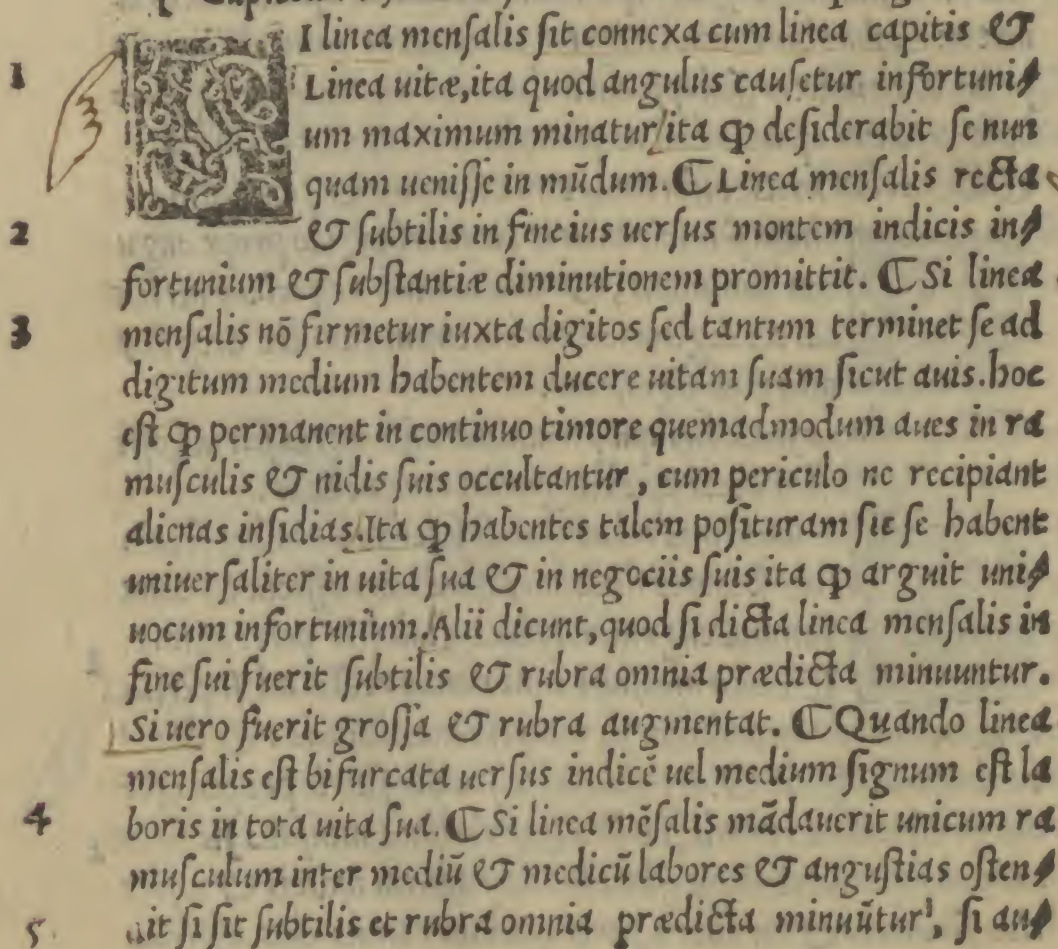 I linea menſalis ſit connexa cum linea capitis &
1 Linea uitæ, ita quod angulus cauſetur infortuni⸗
um maximum minatur ita ꝙ deſiderabit ſe nun
quam ueniſſe in mūdum. ⸿ Linea menſalis recta
2 & ſubtilis in fine ius uerſus montem indicis in⸗
fortunium & ſubſtantiæ diminutionem promittit. ⸿ Si linea
3 menſalis nō firmetur iuxta digitos ſed tantum terminet ſe ad
digitum medium habentem ducere uitam ſuam ſicut auis. hoc
eſt ꝙ permanent in continuo timore quemadmodum aues in ra
muſculis & nidis ſuis occultantur, cum periculo ne recipiant
alienas inſidias. Ita ꝙ habentes talem poſituram ſic ſe habent
uniuerſaliter in uita ſua & in negociis ſuis ita ꝙ arguit uni⸗
uocum infortunium. Alii dicunt, quod ſi dicta linea menſalis in
fine ſui fuerit ſubtilis & rubra omnia prædicta minuuntur.
Si uero fuerit groſſa & rubra augmentat. ⸿ Quando linea
menſalis eſt bifurcata uerſus indicē uel medium ſignum eſt la
4 boris in tota uita ſua. ⸿ Si linea mēſalis mādauerit unicum ra
muſculum inter mediū & medicū labores & anguſtias oſten⸗
5 dit ſi ſit ſubtilis et rubra omnia prædicta minuūtur, ſi au⸗